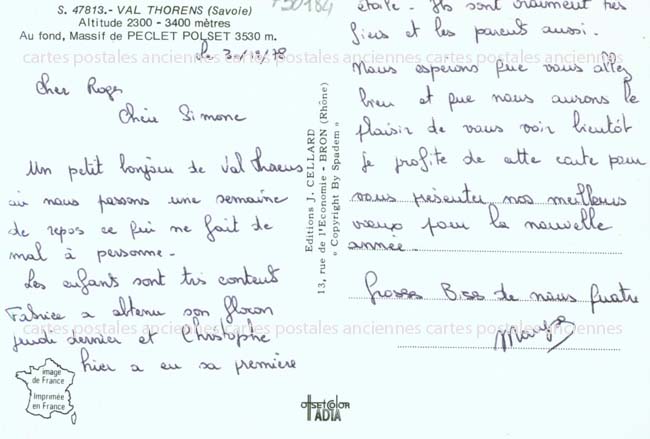 S. 47813.- VAL THORENS (Savoie)
Altitude 2300 - 3400 mètres
Au fond, Massif de PECLET POLSET 3530 m.
cartes postales anciennes cartes postales anciennes cartes postales anciennes
Cher Roger
Chère Simone
Un petit bonjour de Val Thorens
où nous passons une semaine
de repos ce qui ne fait de
mal à personne.
Les enfants sont très contents
Fabrice a obtenu son flocon
jeudi dernier et Christophe
hier a eu sa première
image
de France
Imprimée
en France
Editions J. CELLARD
13, rue de l'Economie - BRON (Rhône)
" Copyright By Spadem "
étoile. Ils sont vraiment très
fiers et les parents aussi.
Nous espérons que vous allez
bien et que nous aurons le
plaisir de vous voir bientôt
je profite de cette carte pour
vous présenter nos meilleurs
voeux pour la nouvelle
année.
Grosses Bises de nous quatre
cartes postales anciennes cartes postales anciennes cartes postales anciennes
OFFSET COLOR
IADIA